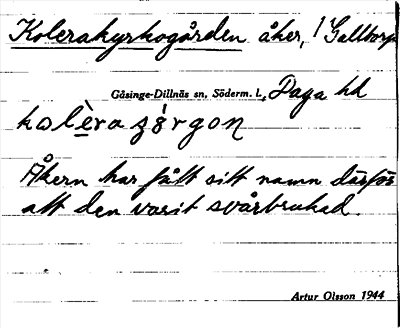 Kolerakyrkogården åker, Galltorp
Gåsinge-Dillnäs sn, Söderm. l., Daga hd
kolèra
Åkern har fått sitt namn därför
att den varit svårbrukad.
Artur Olsson 1944